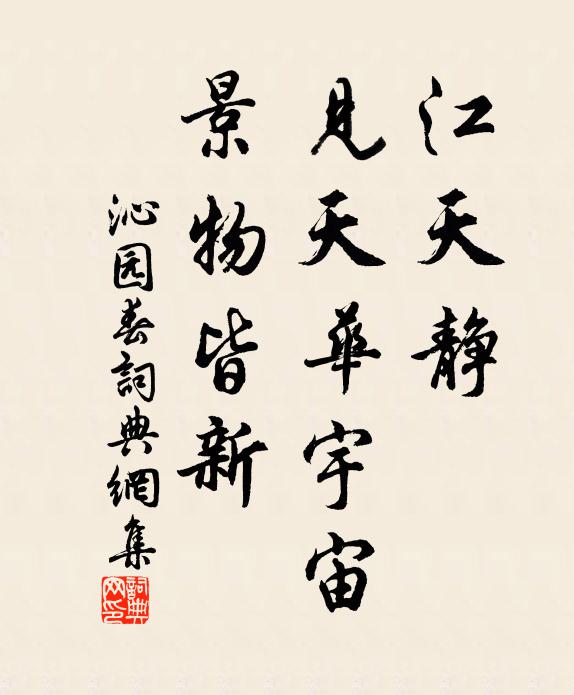 江天静
見天華宇宙
景物皆新
沁园春詞典網集
詞典
网印